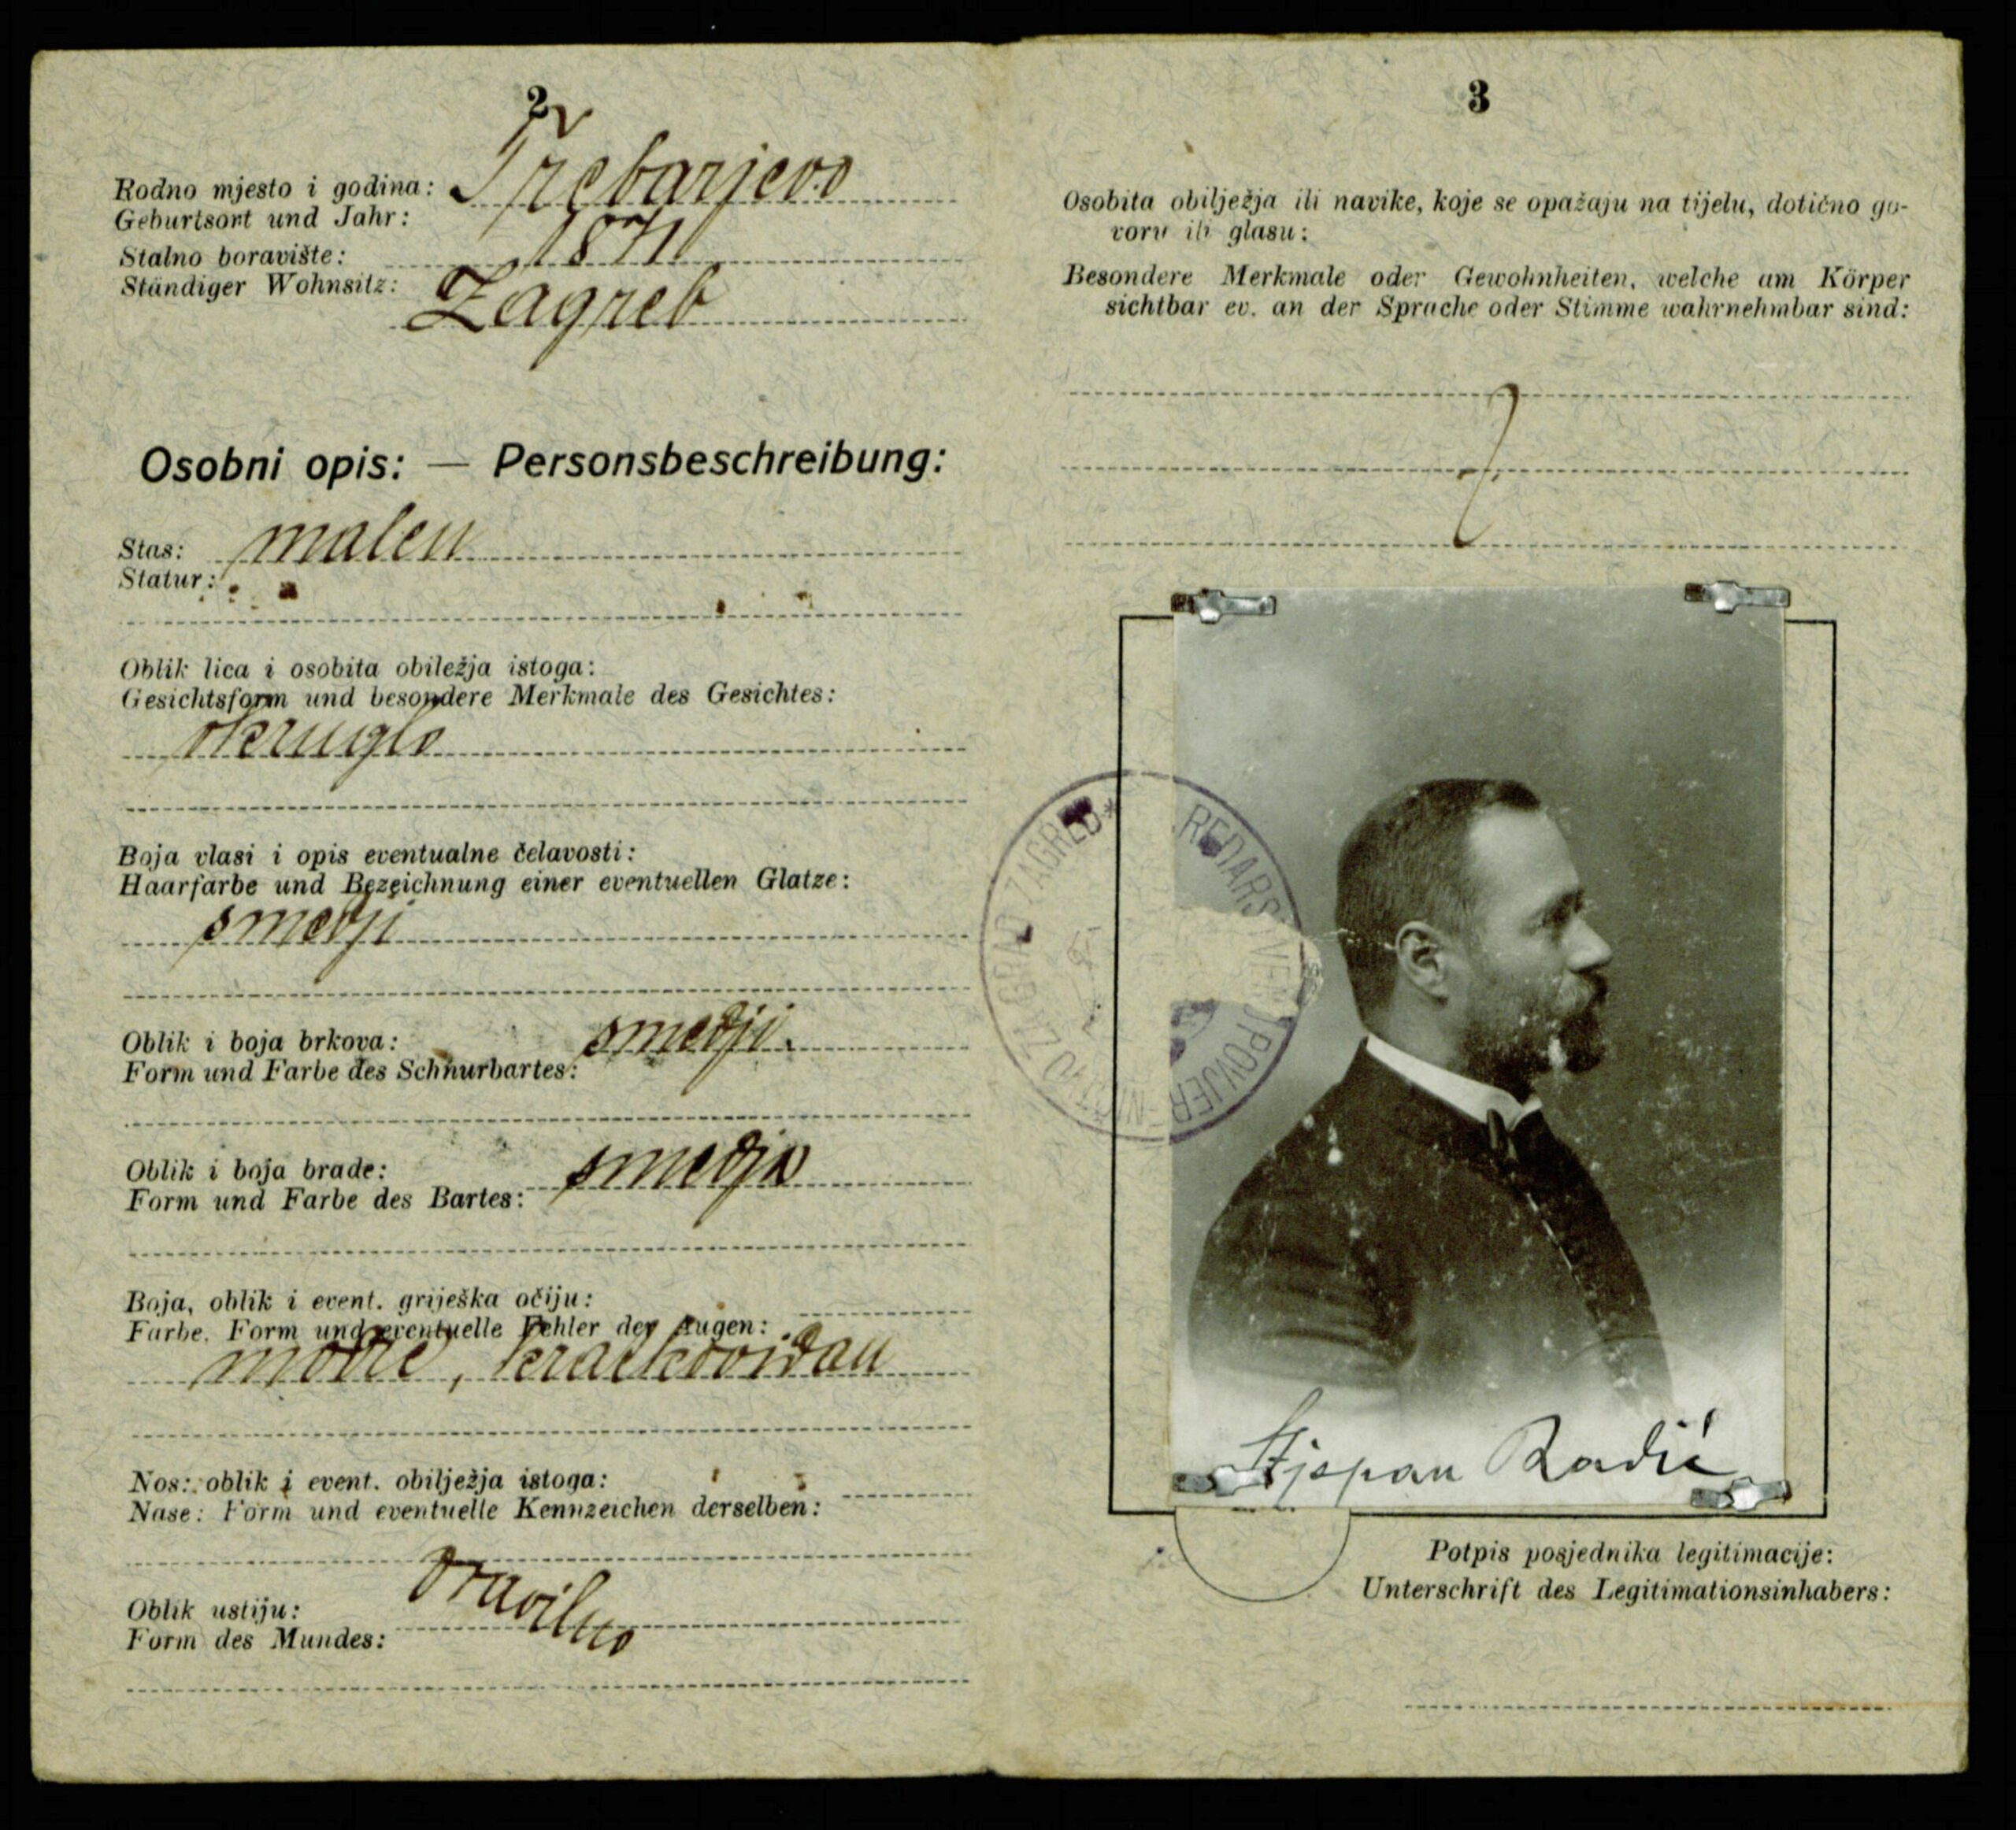 2
Rodno mjesto i godina: Trebarjevo
Geburtsort und Jahr:
1871
Stalno boravište:
Ständiger Wohnsitz: Zagreb
Osobni opis: — Personsbeschreibung:
Stas: malen
Statur:
Oblik lica i osobita obiležja istoga:
Gesichtsform und besondere Merkmale des Gesichtes:
okruglo
Boja vlasi i opis eventualne čelavosti:
Haarfarbe und Bezeichnung einer eventuellen Glatze:
smedji
Oblik i boja brkova: smedji.
Form und Farbe des Schnurbartes:
Oblik i boja brade: smedja
Form und Farbe des Bartes:
Boja, oblik i event. griješka očiju:
Farbe, Form und eventuelle Fehler der Augen:
modre, kratkovidan
Nos: oblik i event. obilježja istoga:
Nase: Form und eventuelle Kennzeichen derselben:
pravilno
Oblik ustiju:
Form des Mundes:
3
Osobita obilježja ili navike, koje se opažaju na tijelu, dotično go-
voru ili glasu:
Besondere Merkmale oder Gewohnheiten, welche am Körper
sichtbar ev. an der Sprache oder Stimme wahrnehmbar sind:
GRAD ZAGREB * REDARS POVJER
Stjepan Radić
Potpis posjednika legitimacije:
Unterschrift des Legitimationsinhabers: